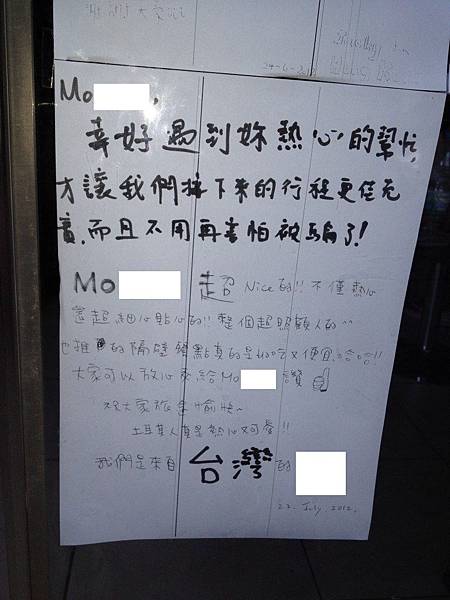 謝謝大家
24-6-
Mo      ,
幸好遇到妳熱心的幫忙,
才讓我們接下來的行程更佳充
實,而且不用再害怕被騙了!
Mo      超 Nice的!! 不僅熱心
還超細心貼心的!! 整個超照顧人的~~
也推的隔壁餐點真的是好吃又便宜哈哈!!
大家可以放心交給Mo      讚
祝大家旅途愉快~
土耳其人真是熱心又可愛!!
我們是來自 台灣 的
22. July. 2012.